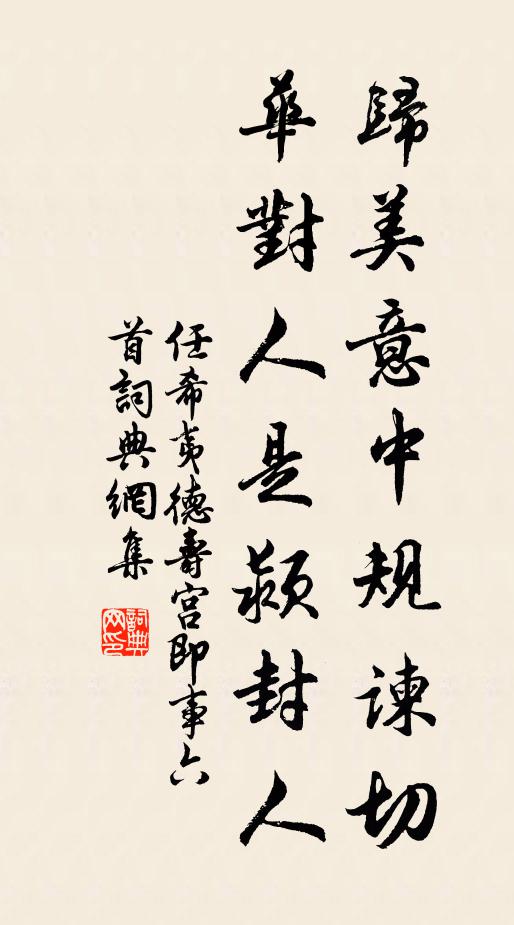 歸美意中規諫切
華對人是潁封人
任希夷德壽宮即事六
首詞典網集
詞典
网印